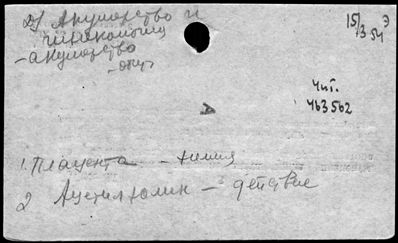 2) Акушерство и
гинекология
15/3 54 Э
- акушерство
Чит.
463562
1. Плацента - химия
2 Ацетилхолин - действие